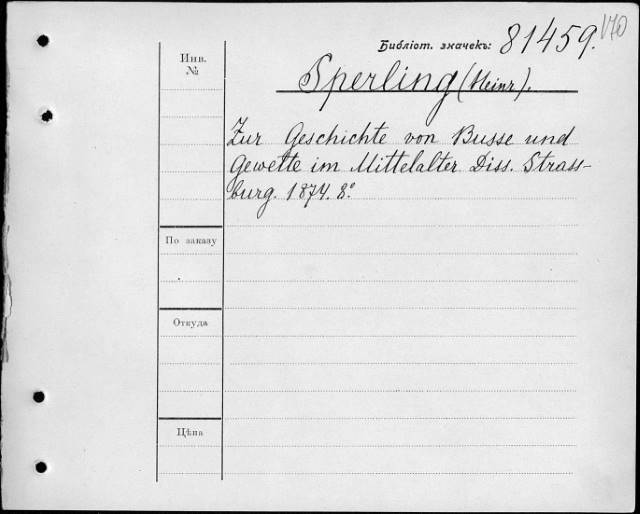 170
Библіот. значекъ: 81459.
Инв.
№
Sperling (Heinr).
Zur Geschichte von Busse und
Gewette im Mittelalter Diss. Strass-
burg. 1874. 8°
По заказу
Откуда
Цѣна